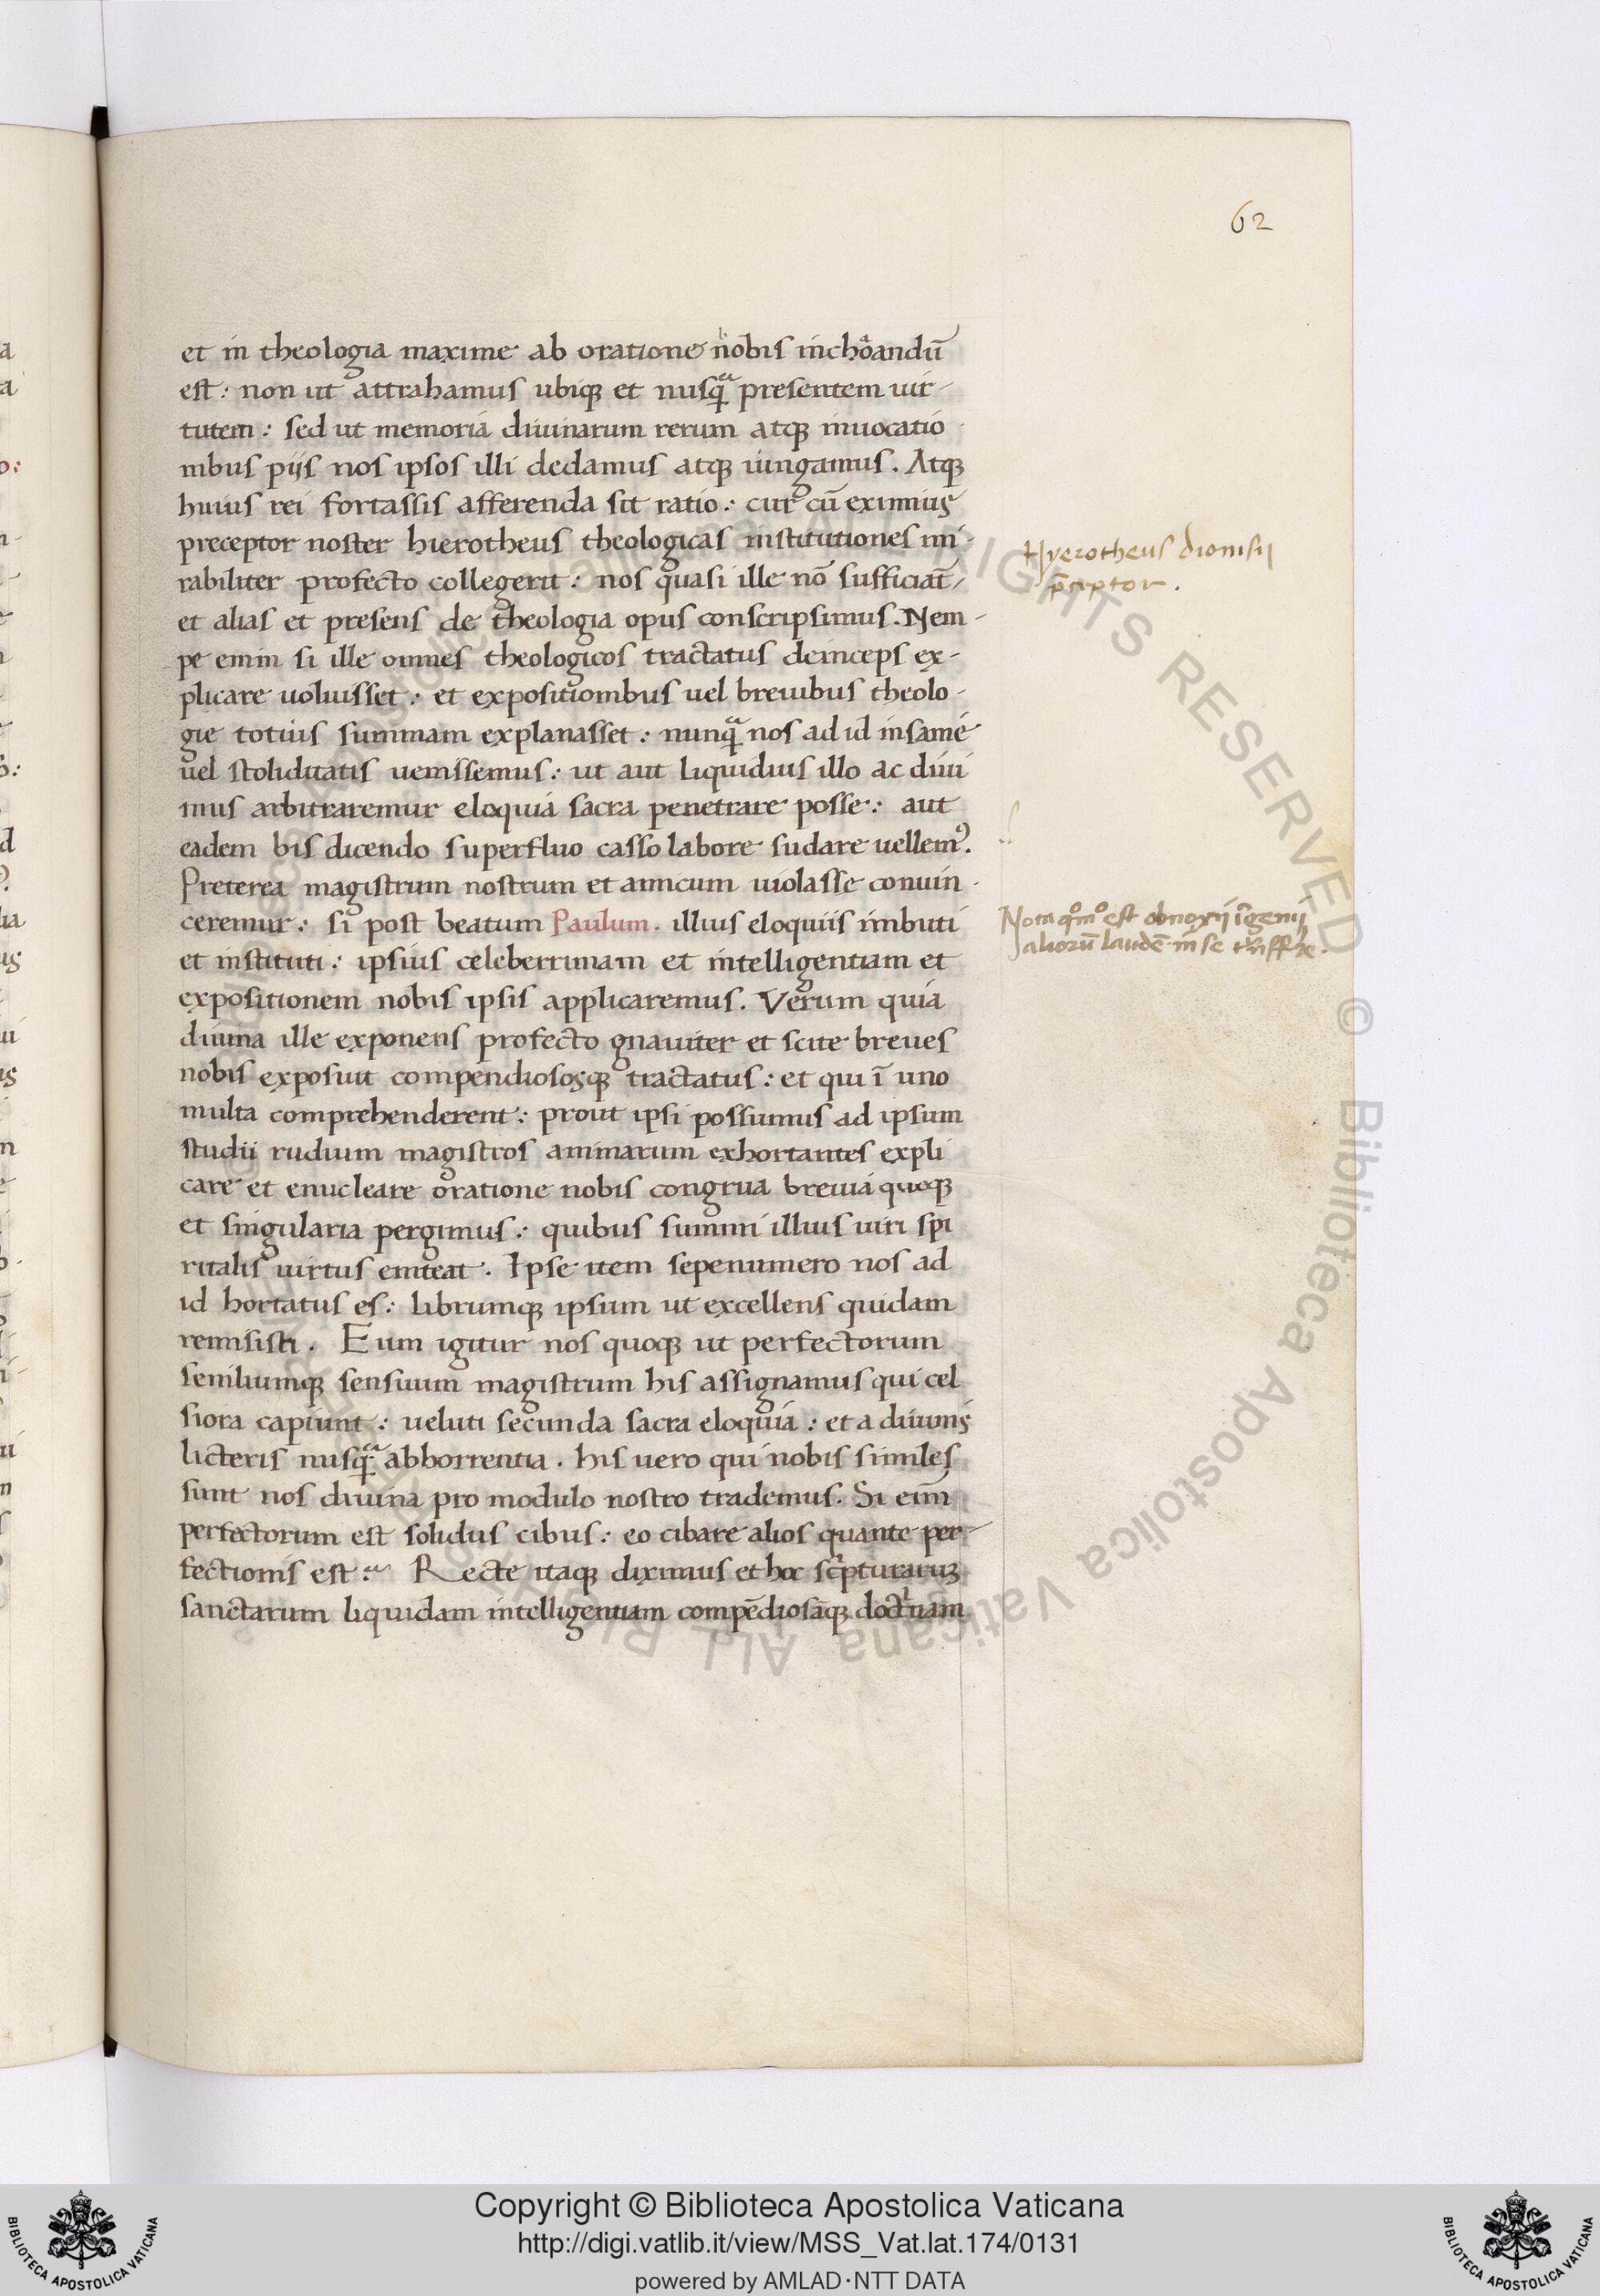 62
et in theologia maxime ab oratione nobis inchoandū
est: non ut attrahamus ubiqꝫ et nusqᵃ̄ presentem uir-
tutem: sed ut memoria diuinarum rerum atqꝫ inuocatio
nibus pijs nos ipsos illi dedamus atqꝫ iungamus. Atqꝫ
huius rei fortassis afferenda sit ratio: cur cū eximius
preceptor noster hierotheus theologicas institutiones mi-
rabiliter profecto collegerit: nos quasi ille nō sufficiat̄
et alias et presens de theologia opus conscripsimus. Nem-
pe enim si ille omnes theologicos tractatus deinceps ex-
plicare uoluisset: et expositionibus uel breuibus theolo-
gie totius summam explanasset: nunqᵃ̄ nos ad id insanie
uel stoliditatis uenissemus: ut aut liquidius illo ac diui
nius arbitraremur eloquia sacra penetrare posse: aut
eadem bis dicendo superfluo casso labore sudare uellemꝰ.
Preterea magistrum nostrum et amicum uiolasse conuin-
ceremur: si post beatum Paulum. illius eloquiis imbuti
et instituti: ipsius celeberrimam et intelligentiam et
expositionem nobis ipsis applicaremus. Verum quia
diuina ille exponens profecto gnauiter et scite breues
nobis exposuit compendiososqꝫ tractatus: et qui ī uno
multa comprehenderent: prout ipsi possumus ad ipsum
studii rudium magistros animarum exhortantes expli
care et enucleare oratione nobis congrua breuia quoqꝫ
et singularia pergimus: quibus summi illius uiri spi
ritalis uirtus emineat. Ipse item sepenumero nos ad
id hortatus es: librumqꝫ ipsum ut excellens quidam
remisisti. Eum igitur nos quoqꝫ ut perfectorum
seniliumqꝫ sensuum magistrum his assignamus qui cel
siora capiunt: ueluti secunda sacra eloquia: et a diuinis
licteris nusqᵃ̄ abhorrentia. his uero qui nobis similes
sunt nos diuina pro modulo nostro trademus. Si eim̄
perfectorum est solidus cibus: eo cibare alios quante per-
fectionis est? Recte itaqꝫ diximus et hoc scͥpturaruꝫ
sanctarum liquidam intelligentiam compēdiosāqꝫ doctͥnam
Hyerotheus dionisij
p̄ceptor.
Nota qᵒmᵒ est obnoxij īgenij
aliorū laudē in se
Copyright © Biblioteca Apostolica Vaticana
http://digi.vatlib.it/view/MSS_Vat.lat.174/0131
powered by AMLAD·NTT DATA
BIBLIOTECA APOSTOLICA VATICANA
BIBLIOTECA APOSTOLICA VATICANA
© Biblioteca Apostolica Vaticana ALL RIGHTS RESERVED